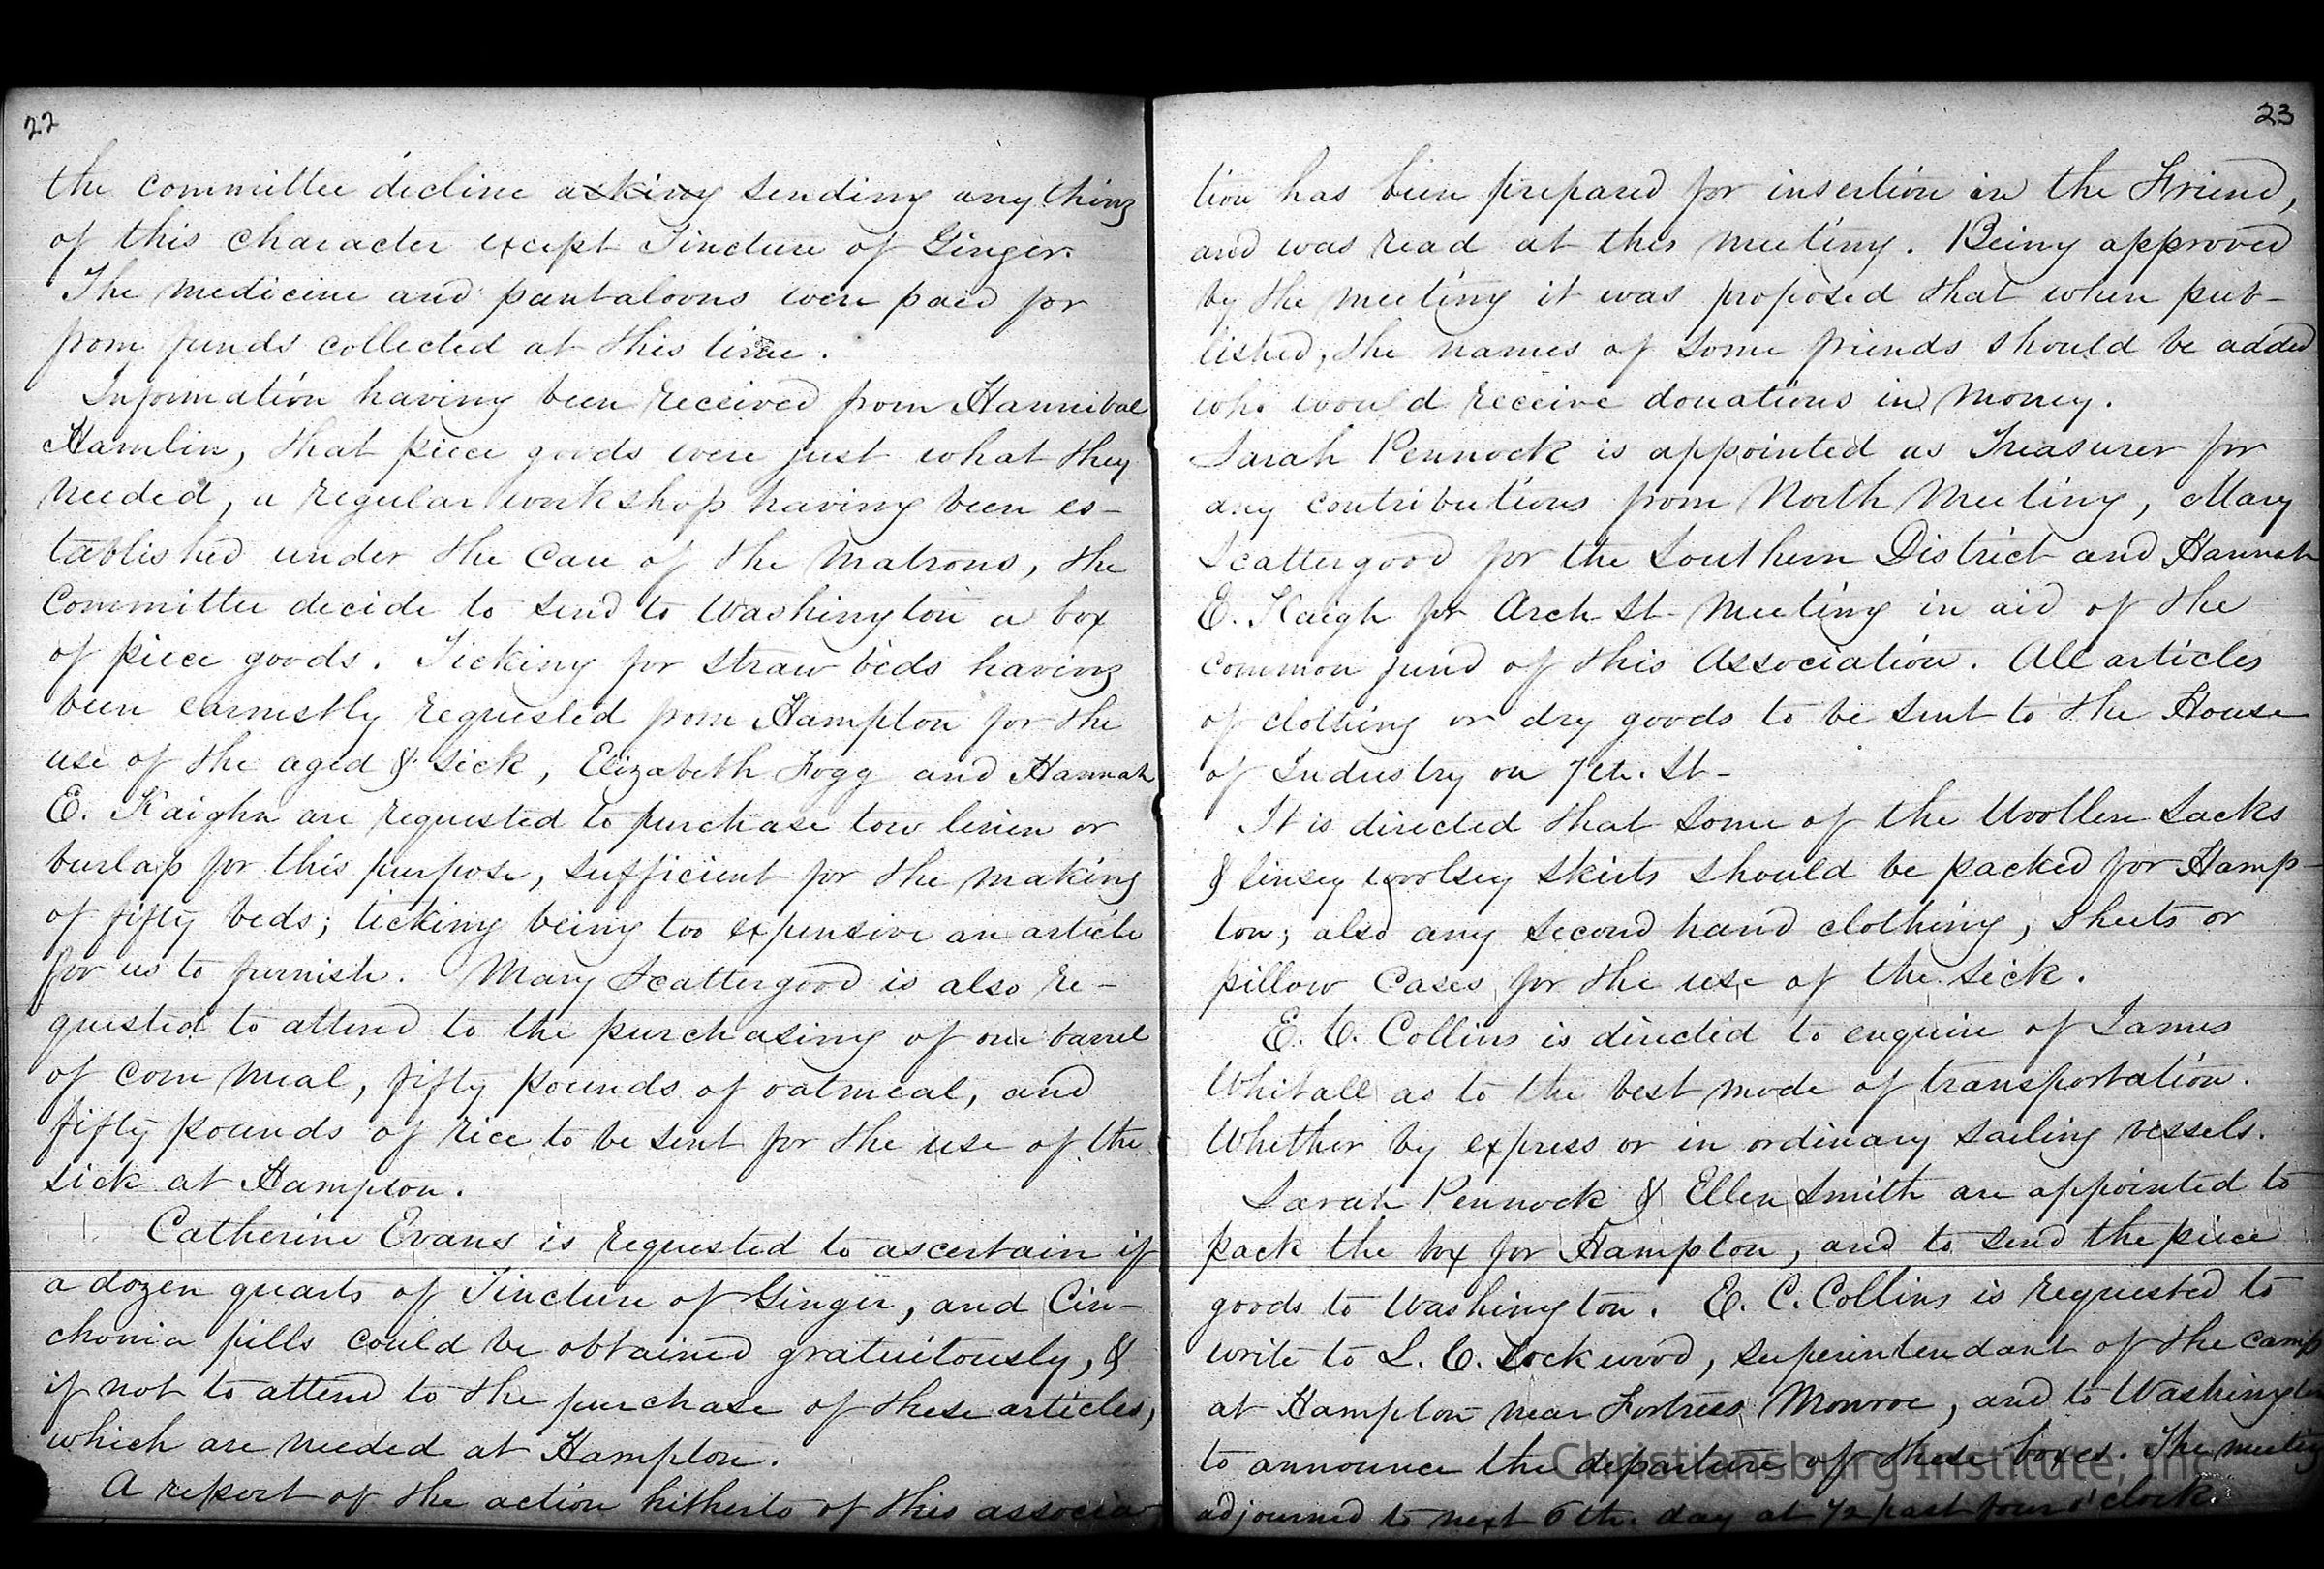 22
the committee decline asking sending any thing
of this character except Tincture of Ginger.
The medicine and pantaloons were paid for
from funds collected at this time.
Information having been received from Hannibal
Hamlin, that piece goods were just what they
needed, a regular workshop having been es-
tablished under the care of the Matrons, the
Committee decide to send to Washington a box
of piece goods. Ticking for straw beds having
been earnestly requested from Hampton for the
use of the aged & sick, Elizabeth Fogg and Hannah
E. Kaighn are requested to purchase tow linen or
burlap for this purpose, sufficient for the making
of fifty beds; ticking being too expensive an article
for us to furnish. Mary Scattergood is also re-
quested to attend to the purchasing of one barrel
of corn meal, fifty pounds of oatmeal, and
fifty pounds of rice to be sent for the use of the
sick at Hampton.
Catherine Evans is requested to ascertain if
a dozen quarts of Tincture of Ginger, and Cin-
chonia pills could be obtained gratuitously, &
if not to attend to the purchase of these articles,
which are needed at Hampton.
A report of the action hitherto of this associa-
23
tion has been prepared for insertion in the Friend,
and was read at this meeting. Being approved
by the meeting it was proposed that when pub-
lished, the names of some friends should be added
who would receive donations in money.
Sarah Pennock is appointed as Treasurer for
any contributions from North Meeting, Mary
Scattergood for the Southern District and Hannah
E. Kaigh for Arch St Meeting in aid of the
common fund of this Association. All articles
of clothing or dry goods to be sent to the House
of Industry on 7th. St-
It is directed that some of the Woollen Sacks
& linsey woolsey skirts should be packed for Hamp-
ton; also any second hand clothing, sheets or
pillow cases for the use of the sick.
E. C. Collins is directed to enquire of James
Whitall as to the best mode of transportation.
Whether by express or in ordinary sailing vessels.
Sarah Pennock & Ellen Smith are appointed to
pack the box for Hampton, and to send the piece
goods to Washington. E. C. Collins is requested to
write to L. C. Lockwood, superintendant of the camp
at Hampton near Fortress Monroe, and to Washington
to announce the departure of these boxes. The meeting
adjourned to next 6th. day at 1/2 past four o'clock.
Christiansburg Institute, Inc.